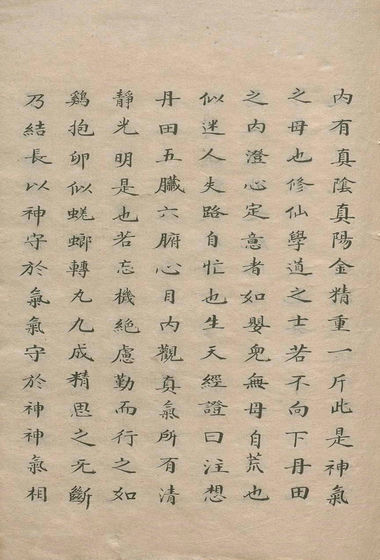 內有真陰真陽金精重一斤此是神氣
之母也修仙學道之士若不向下丹田
之內澄心定意者如嬰兒無母自荒也
似迷人失路自忙也生天經證曰注想
丹田五臟六腑心目內觀真氣所有清
靜光明是也若忘機絕慮勤而行之如
鷄抱卵似蜣螂轉丸九成精思之无斷
乃結長以神守於氣氣守於神神氣相